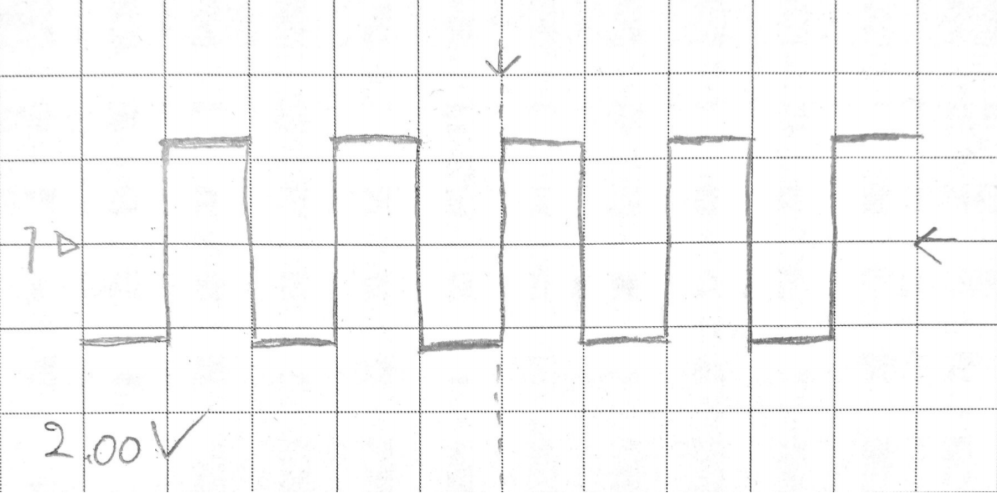 1
2.00 V